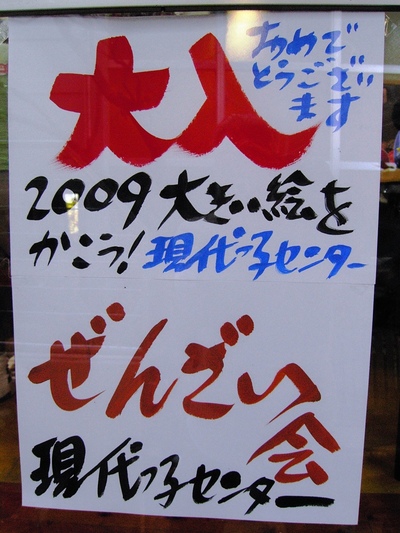 大入
おめで
とうござい
ます
2009大きい絵を
かこう!現代っ子センター
ぜんざい
会
現代っ子センター